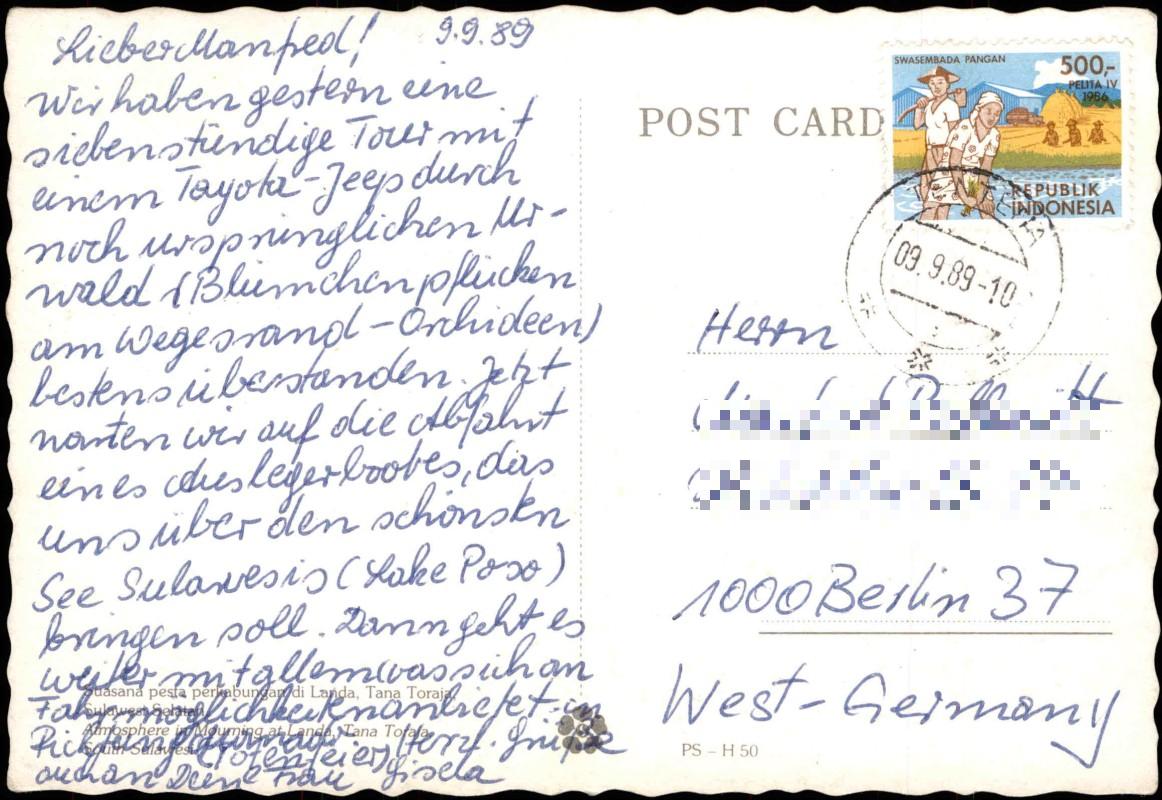 Lieber Manfred! 9.9.89
Wir haben gestern eine
siebenstündige Tour mit
einem Tayota-Jeep durch
noch ursprünglichen Ur-
wald (Blümchen pflücken
am Wegesrand - Orchideen)
bestens überstanden. Jetzt
warten wir auf die Abfahrt
eines Auslegerbootes, das
uns über den schönsten
See Sulawesis (Lake Poso)
bringen soll. Dann geht es
weiter mit allem was sich an
Fahrmöglichkeiten anbietet in
Richtung
(Totenfeier) Herzl. Grüße
auch an Deine Frau Gisela
Suasana pesta perkabungan di Landa, Tana Toraja,
Sulawesi Selatan
Atmosphere in Mourning at Landa, Tana Toraja,
South Sulawesi
POST CARD
SWASEMBADA PANGAN
500,-
PELITA IV
1986
REPUBLIK
INDONESIA
09.9.89-10
Herrn
1000 Berlin 37
West-Germany
PS – H 50